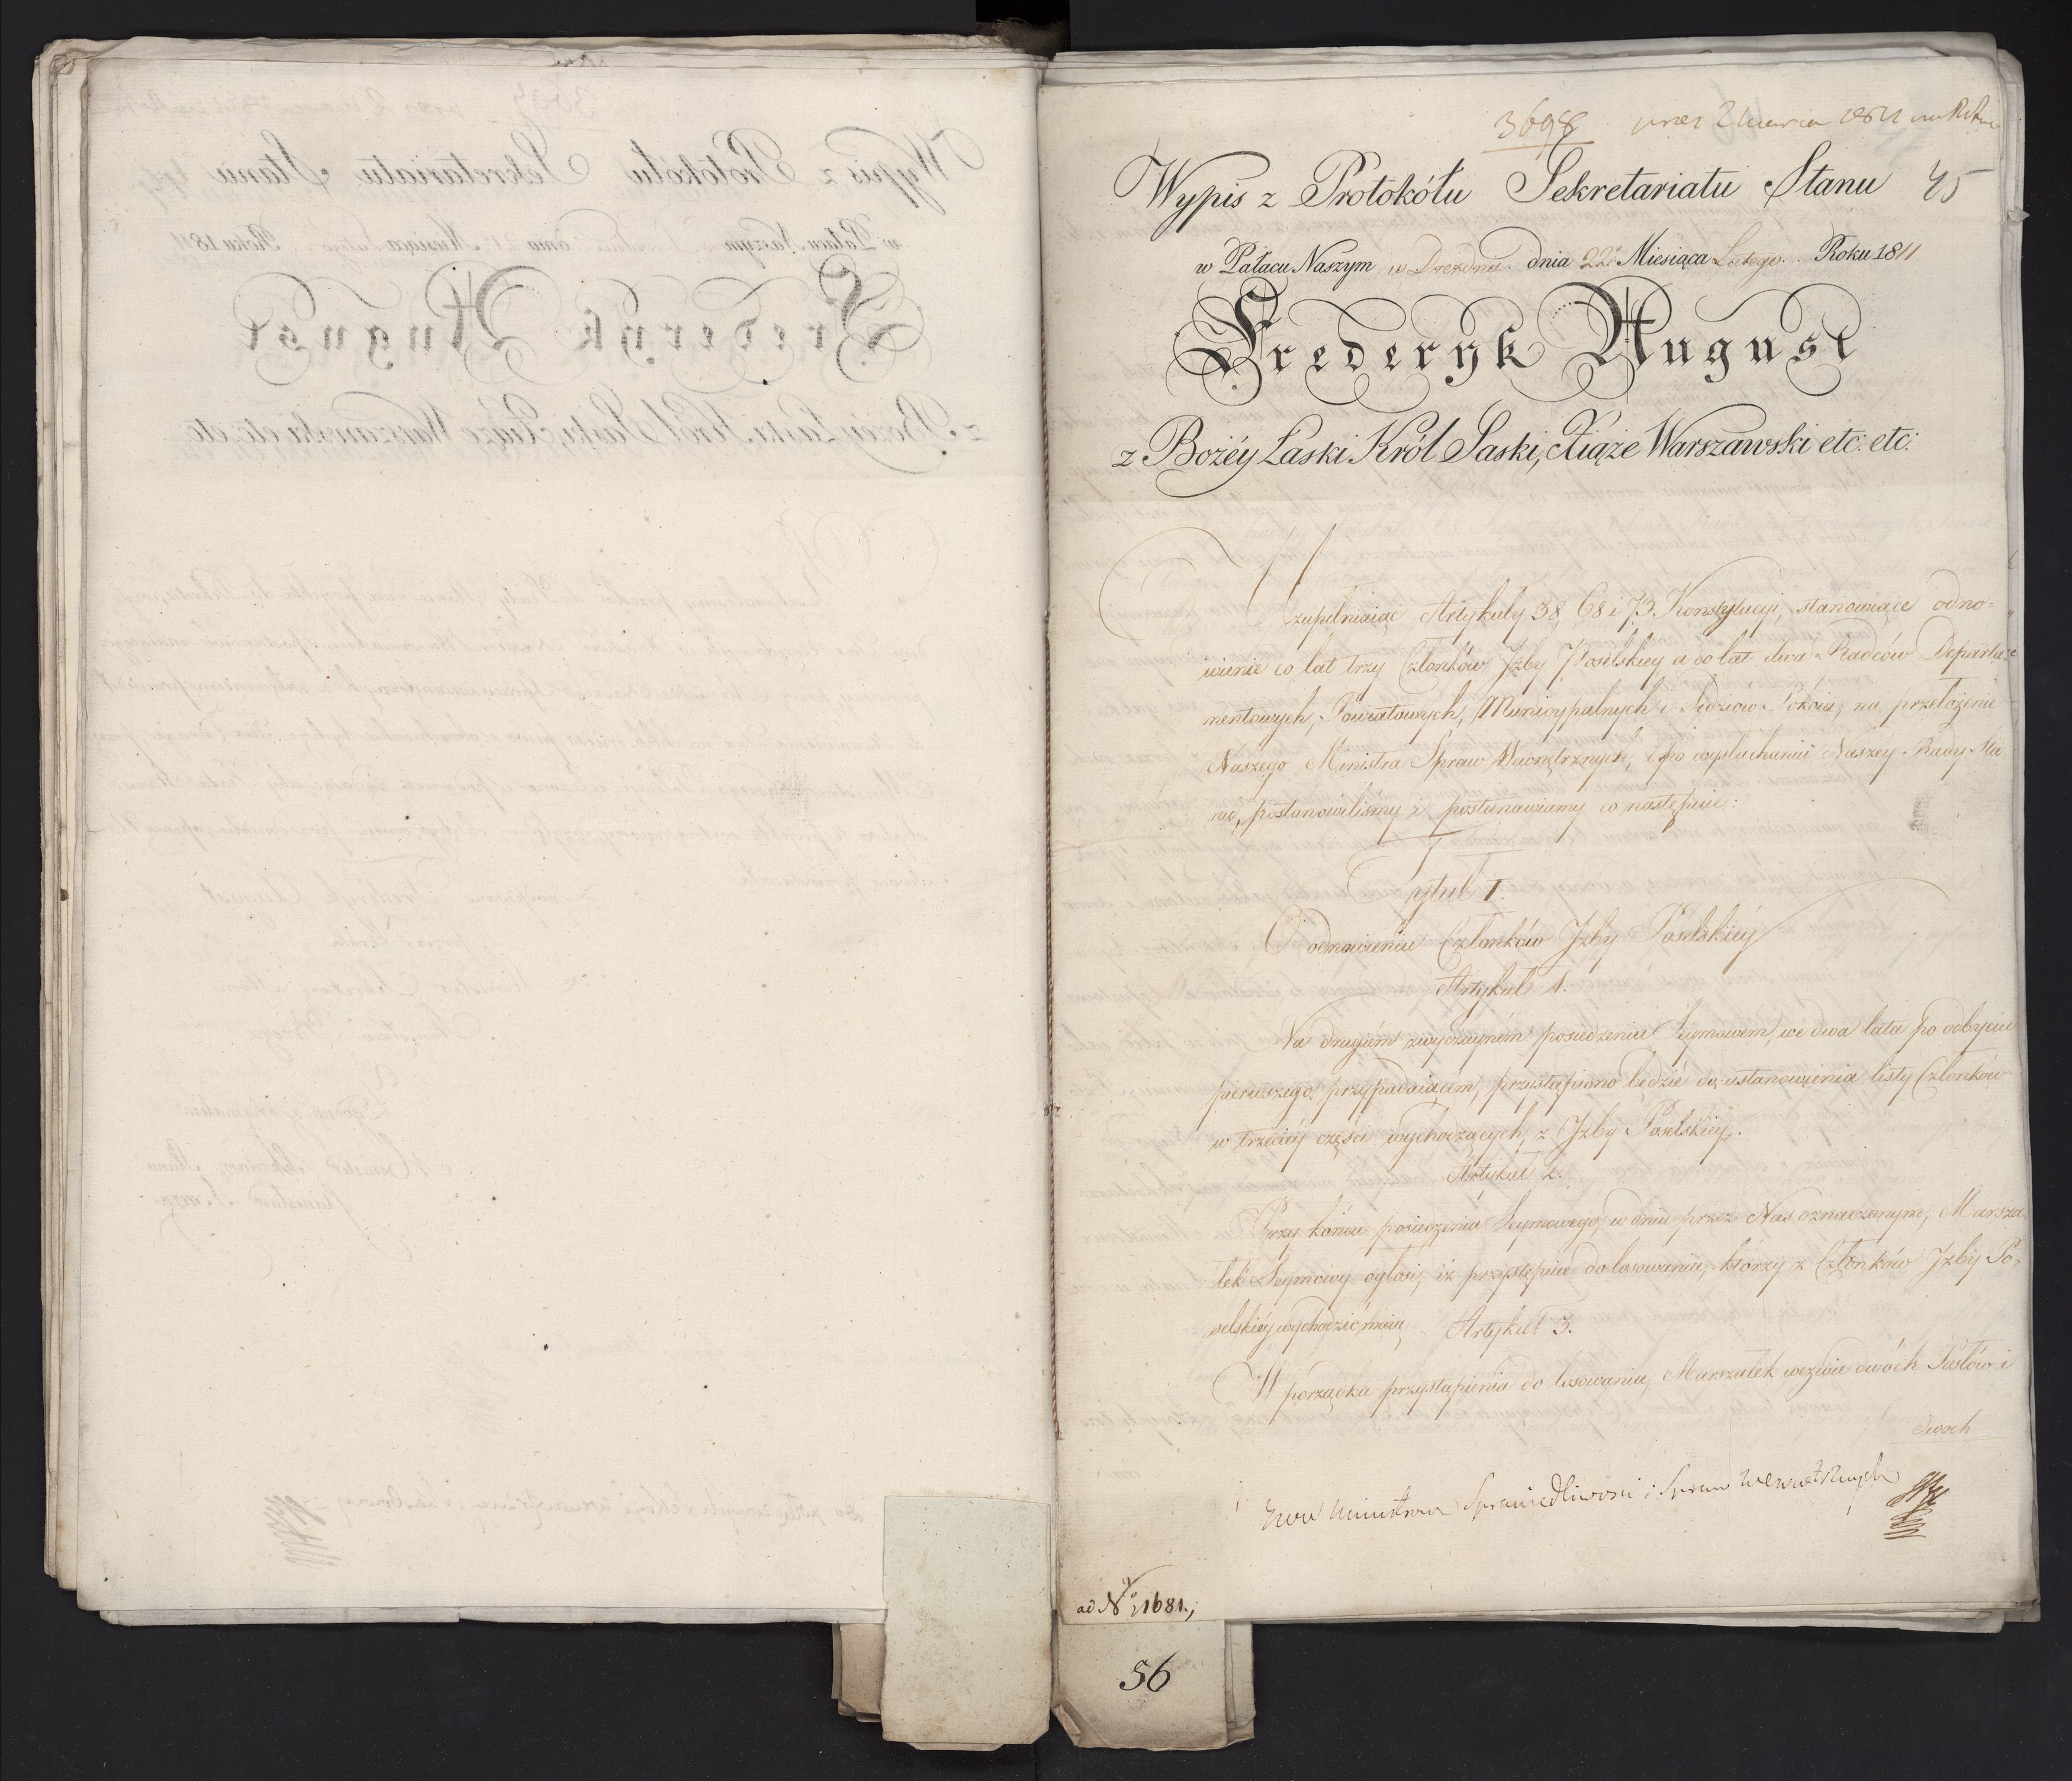 3698
Wypis z Protokółu Sekretariatu Stanu 45
w Pałacu Naszym w Dreźnie dnia 22º Miesiąca Lutego. Roku 1811
Frederyk August
z Bożéy Łaski Król Saski, Xiąże Warszawski etc: etc:
Uzupełniaiąc Artykuły 38, 68 i 73. Konstytucyi, stanowiące odno-
wienie co lat trzy Członków Jzby Poselskiey a co lat dwa Radców Departa-
mentowych, Powiatowych, Municypalnych i Sędziów Pokoiu; na przełożenie
Naszego Ministra Spraw Wewnętrznych, i po wysłuchaniu Naszéy Rady Sta
nu, postanowiliśmy i postanawiamy co następuie:
Tytuł I.
O odnowieniu Członków Jzby Poselskiéy
Artykuł 1.
Na drugiém zwyczayném posiedzeniu Seymowem, we dwa lata po odbyciu
pierwszego przypadaiącem, przystąpiono będzie do ustanowienia listy Członków
w trzeciéy części wychodzących z Jzby Poselskiey.
Artykuł 2.
Przy końcu posiedzenia Seymowego, w dniu przez Nas oznaczonym, Marsza
łek Seymowy ogłosi, iż przystępuie do losowania, którzy z Członków Jzby Po-
selskiéy wychodzić maią
Artykuł 3.
W porządku przystąpienia do losowania, Marszałek wezwie dwóch Posłów i
dwóch
Ministrom Sprawiedliwosci i Spraw Wewnętrznych
ad Nº 1681.,
56